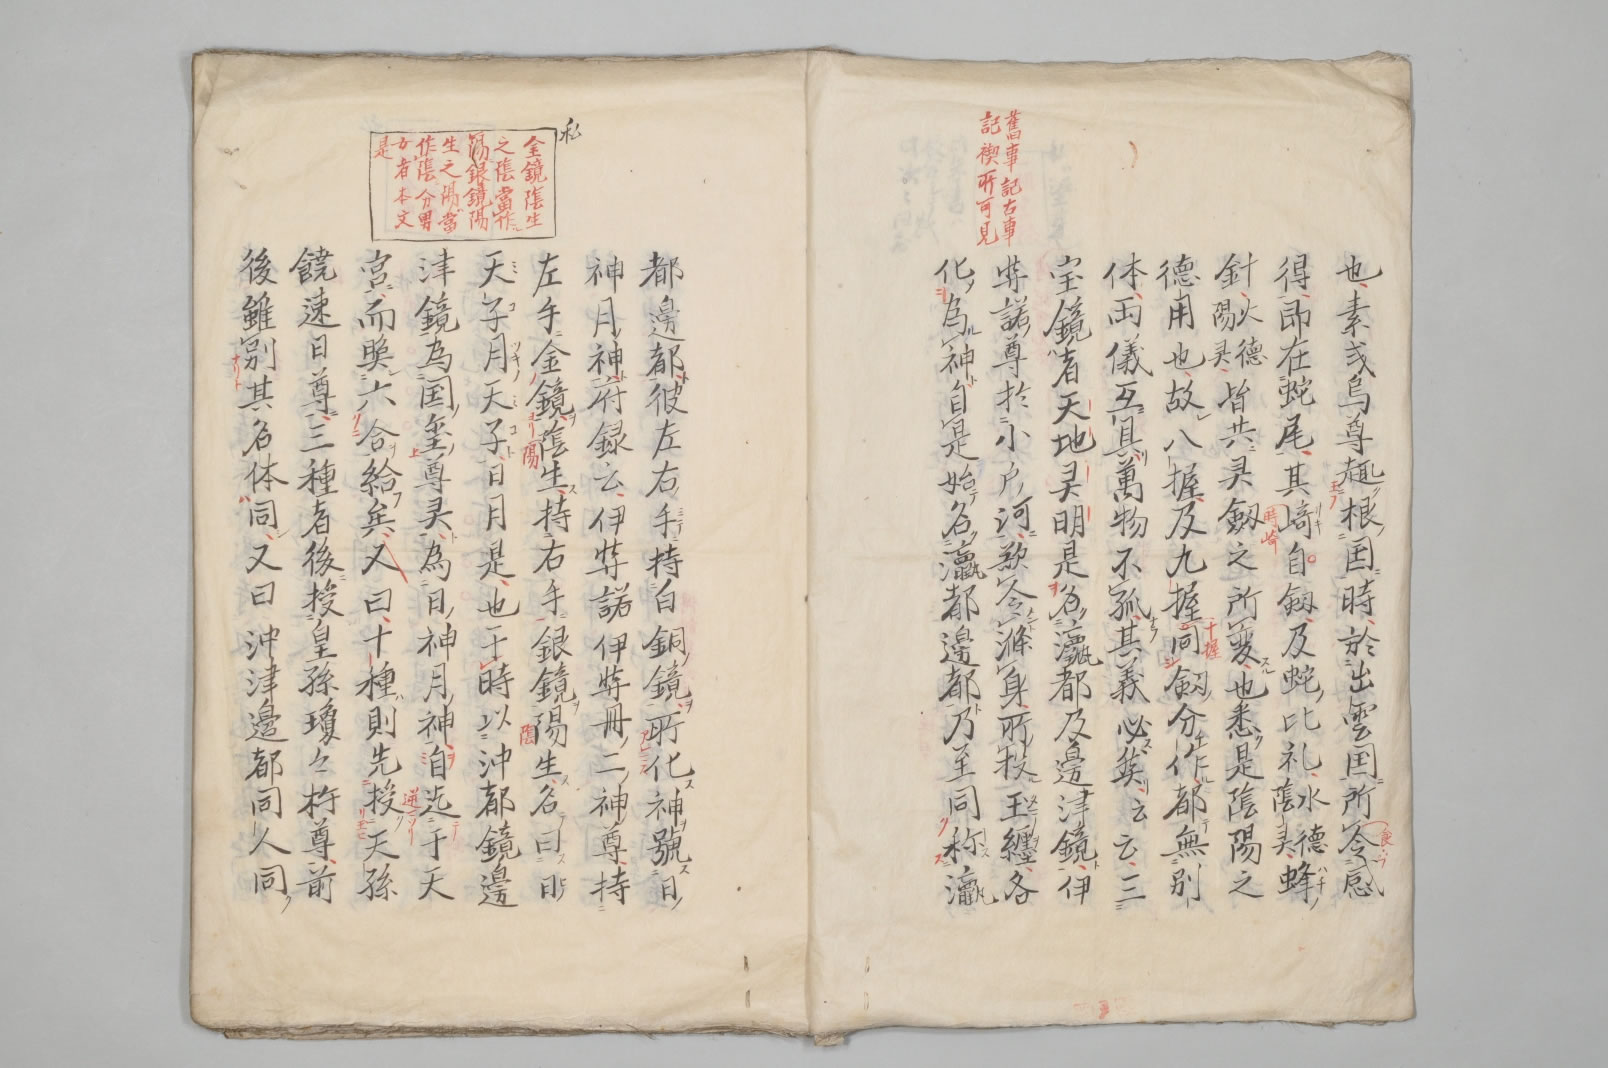 舊事記古事
記禊所可見
也素戔烏尊趣根国時於出雲国所令感
得即在蛇尾其﨑自劔及蛇比礼水德陰灵蜂
針火德陽灵皆共灵劔之所変也悉是陰陽之
德用也故八握及九握同劔分作都無別
体両儀互具萬物不孤其義必矣云云三
宝鏡者天地灵明是名瀛都及邊津鏡伊
弉諾尊於小戸河欲令滌身所投玉纏各
化為神自是始名瀛都邊都乃至同称瀛
私
金鏡陰生
之陰當作
陽銀鏡陽
生之陽當
作陰分男
女者本文
是
都邊都彼左右手持白銅鏡所化神號日
神月神府録云伊弉諾伊弉冊二神尊持
左手金鏡陰生持右手銀鏡陽生名曰日
天子月天子日月是也于時以沖都鏡邊
津鏡為国璽尊灵為日神月神自迯于天
宮而㬇六合給矣又曰十種則先授天孫
饒速日尊三種者後授皇孫瓊々杵尊前
後雖別其名体同又曰沖津邊都同人同